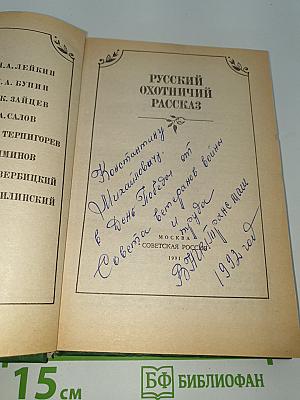 Н.А. ЛЕЙКИН
.А. БУНИН
К. ЗАЙЦЕВ
А. САЛОВ
ТЕРПИГОРЕВ
МИНОВ
ВЕРБИЦКИЙ
ИЛИНСКИЙ
РУССКИЙ
ОХОТНИЧИЙ
РАССКАЗ
Константину
Михайловичу.
в День Победы от
Совета ветеранов войны
и труда
МОСКВА
СОВЕТСКАЯ РОССИЯ
1991
1992 год
15 см
БФ БИБЛИОФАН